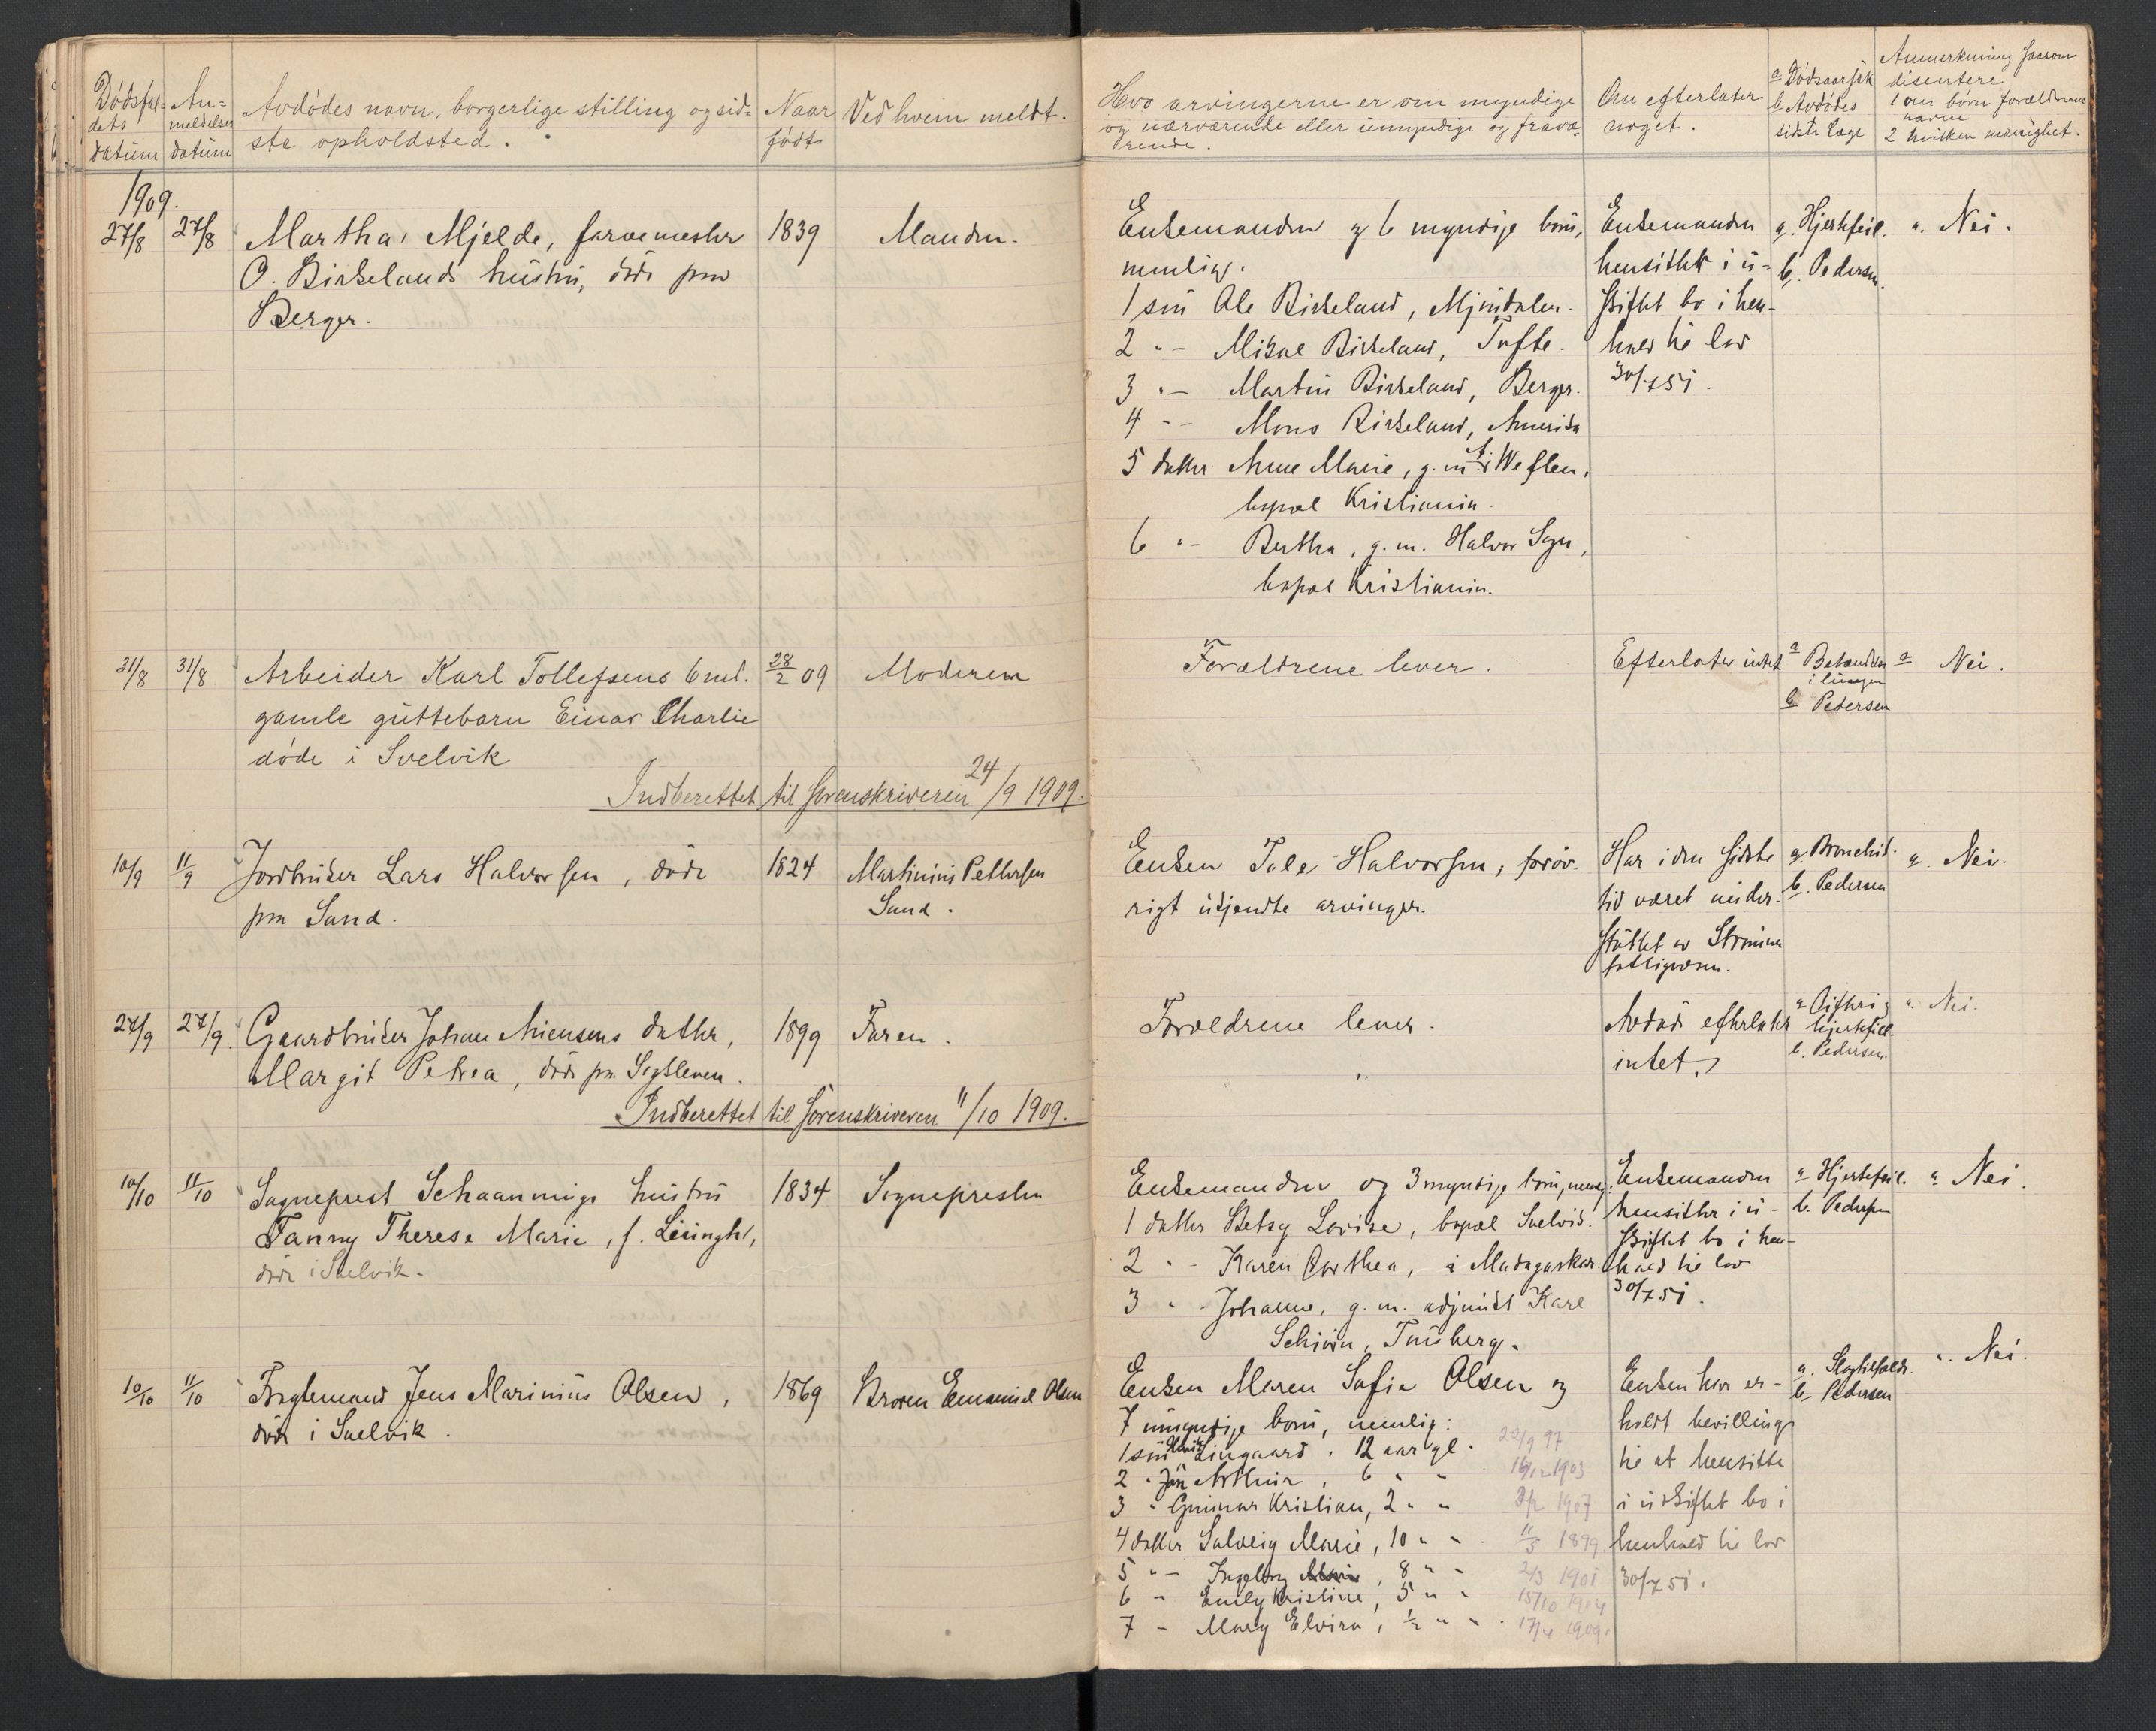 Dödsfal-
dets
datum
An-
meldelses
datum
Avdödes navn, borgerlige stilling og sid-
ste opholdsted.
Naar
født
Ved hvem meldt.
Hvo arvingerne er om myndige
og nærværende eller umyndige og fravæ-
rende.
Om efterlater
noget.
a Dödsaarsak
b Avdödes
sidste læge
Anmerkning saasom
disentere
1 om børn forældrenes
navne
2 hvilken menighet.
1909.
27/8 27/8 Martha Mjelde, farvemester 1839 Manden.
O. Birkelands hustru, døde paa
Berger.
Enkemanden og 6 myndige børn,
nemlig:
1 søn Ole Birkeland, Mjøndalen.
2 "- Mikal Birkeland, Tofte.
3 "- Martin Birkeland, Berger.
4 "- Mons Birkeland, Amerika
5 datter Anne Marie, g. m. A. Weflen,
bopæl Kristiania.
6 "- Bertha, g. m. Halvor
bopæl Kristiania.
Enkemanden
hensitter i u-
skiftet bo i hen-
hold til lov
30/7 51.
a. Hjertefeil.
b. Pedersen.
a. Nei.
31/8 31/8 Arbeider Karl Tollefsens 6 md. 28/2 09 Moderen
gamle guttebarn Einar Charlie
døde i Svelvik
Forældrene lever.
Efterlater intet
a Betændelse
i lungen
b Pedersen
a Nei.
Indberettet til Sorenskriveren 24/9 1909.
10/9 11/9 Jordbruker Lars Halvorsen, døde 1824 Martinius Pettersen
paa Sand. Sand.
Enken Tale Halvorsen, forøv-
rigt ukjendte arvinger.
Har i den sidste
tid været under-
støttet av Strømm
fattigvæsen.
a. Bronchit.
b. Pedersen
a. Nei.
27/9 27/9. Gaardbruker Johan datter, 1899 Faren.
Margit Petrea, døde paa
Forældrene lever.
Avdøde efterlater
intet.
a
hjertefeil.
b. Pedersen.
a. Nei.
Indberettet til Sorenskriveren 11/10 1909.
10/10 11/10 Sogneprest Schaannings hustru 1834 Sognepresten
Fanny Therese Marie, f.
døde i Svelvik.
Enkemanden og 3 myndige børn, nemlig:
1 datter Betsy Lovise, bopæl Svelvik.
2 "- Karen Dorthea, i Madagaskar.
3 "- Johanne, g. m. adjunkt Karl
Tønsberg.
Enkemanden
hensitter i u-
skiftet bo i hen-
hold til lov
30/7 51.
a Hjertefeil.
b. Pedersen
a Nei.
10/10 11/10 Fragtemand Jens Marinius Olsen, 1869 Broren Emanuel Olsen
døde i Svelvik.
Enken Maren Sofie Olsen og
7 umyndige børn, nemlig:
1 søn Lingaard, 12 aar gl. 22/9 97
2 " Arthur, 6 " " 1903
3 " Gunnar Kristian, 2 " " 1907
4 datter Solveig Marie, 10 " " 11/5 1899.
5 "- Ingeborg, 8 " " 2/3 1901
6 " Emely Kristine, 5 " " 15/10 1904
7 - Mary Elvira, ½ " " 17/4 1909.
Enken har er-
holdt bevilling
til at hensitte
i uskiftet bo i
henhold til lov
30/7 51.
a.
b. Pedersen
a. Nei.